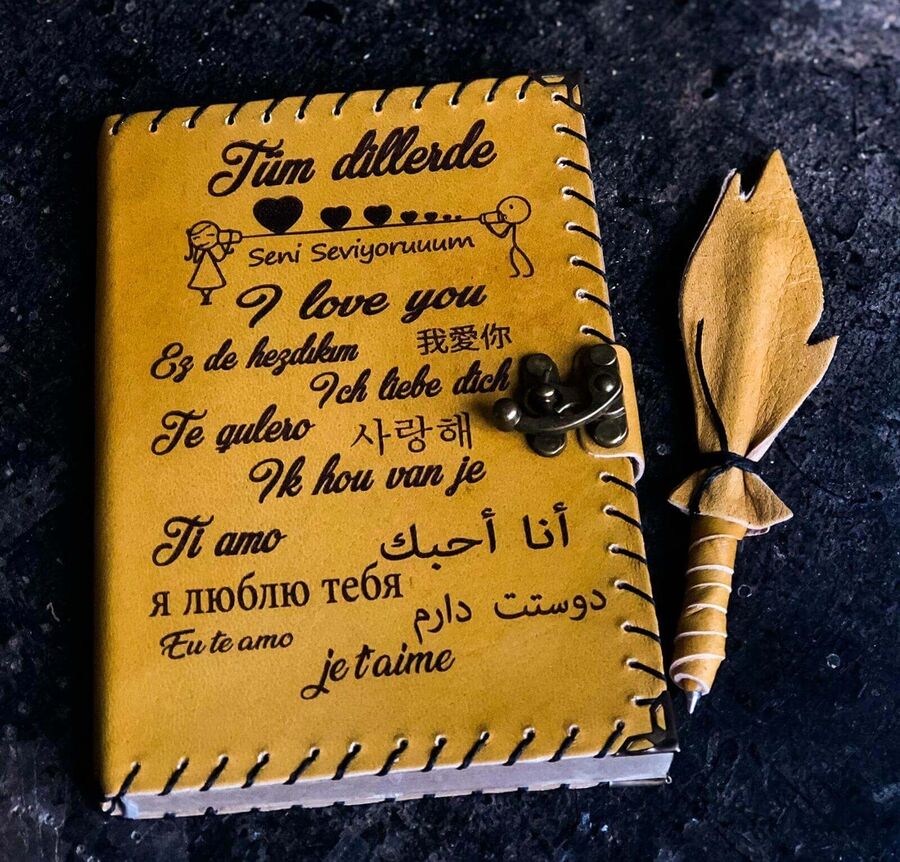 Tüm dillerde
Seni Seviyoruuum
I love you
Ez de hezdıkım
我愛你
Ich liebe dich
Te quiero
사랑해
Ik hou van je
Ti amo
أنا أحبك
я люблю тебя
دوستت دارم
Eu te amo
je t'aime